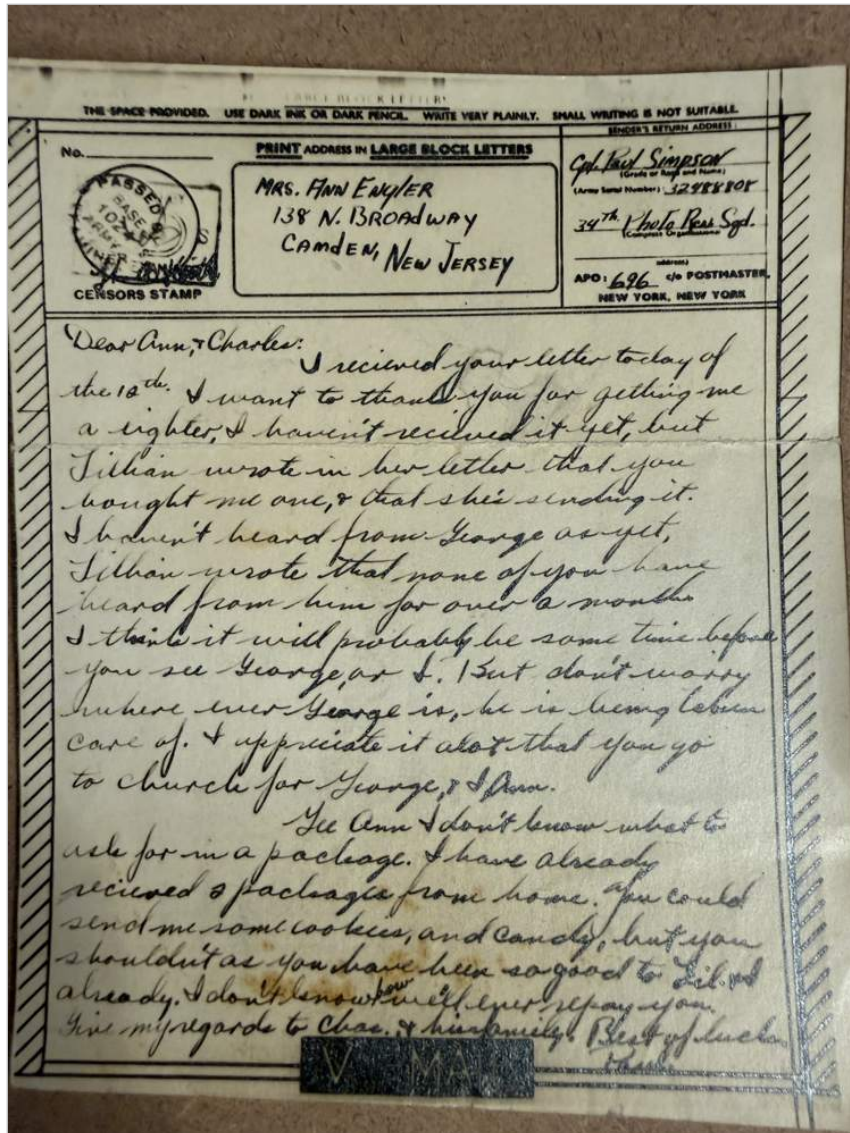 THE SPACE PROVIDED. USE DARK INK OR DARK PENCIL. WRITE VERY PLAINLY. SMALL WRITING IS NOT SUITABLE.
No.
PRINT ADDRESS IN LARGE BLOCK LETTERS
SENDER'S RETURN ADDRESS:
PASSED BY
BASE
1024
ARMY
EXAMINER
CENSORS STAMP
MRS. ANN ENGLER
138 N. BROADWAY
CAMDEN, NEW JERSEY
Cpl. Paul Simpson
(Grade or Rank and Name)
(Army Serial Number) 32488808
34th Photo Recn Sqd.
(Complete Organization)
APO: 696 c/o POSTMASTER,
NEW YORK, NEW YORK
Dear Ann, & Charles:
I recieved your letter today of
the 18th. I want to thank you for getting me
a lighter, I haven't recieved it yet, but
Lillian wrote in her letter that you
bought me one, & that she's sending it.
I haven't heard from George as yet,
Lillian wrote that none of you have
heard from him for over a month
I think it will probably be some time before
you see George, or I. But don't worry
where ever George is, he is being taken
care of. I appreciate it alot that you go
to church for George, & I Ann.
Gee Ann I don't know what to
ask for in a package. I have already
recieved packages from home. You could
send me some cookies, and candy, but you
shouldn't as you have been so good to Lil. & I
already. I don't know how we'll ever repay you.
Give my regards to Chas. & his family. Best of luck
V MAIL